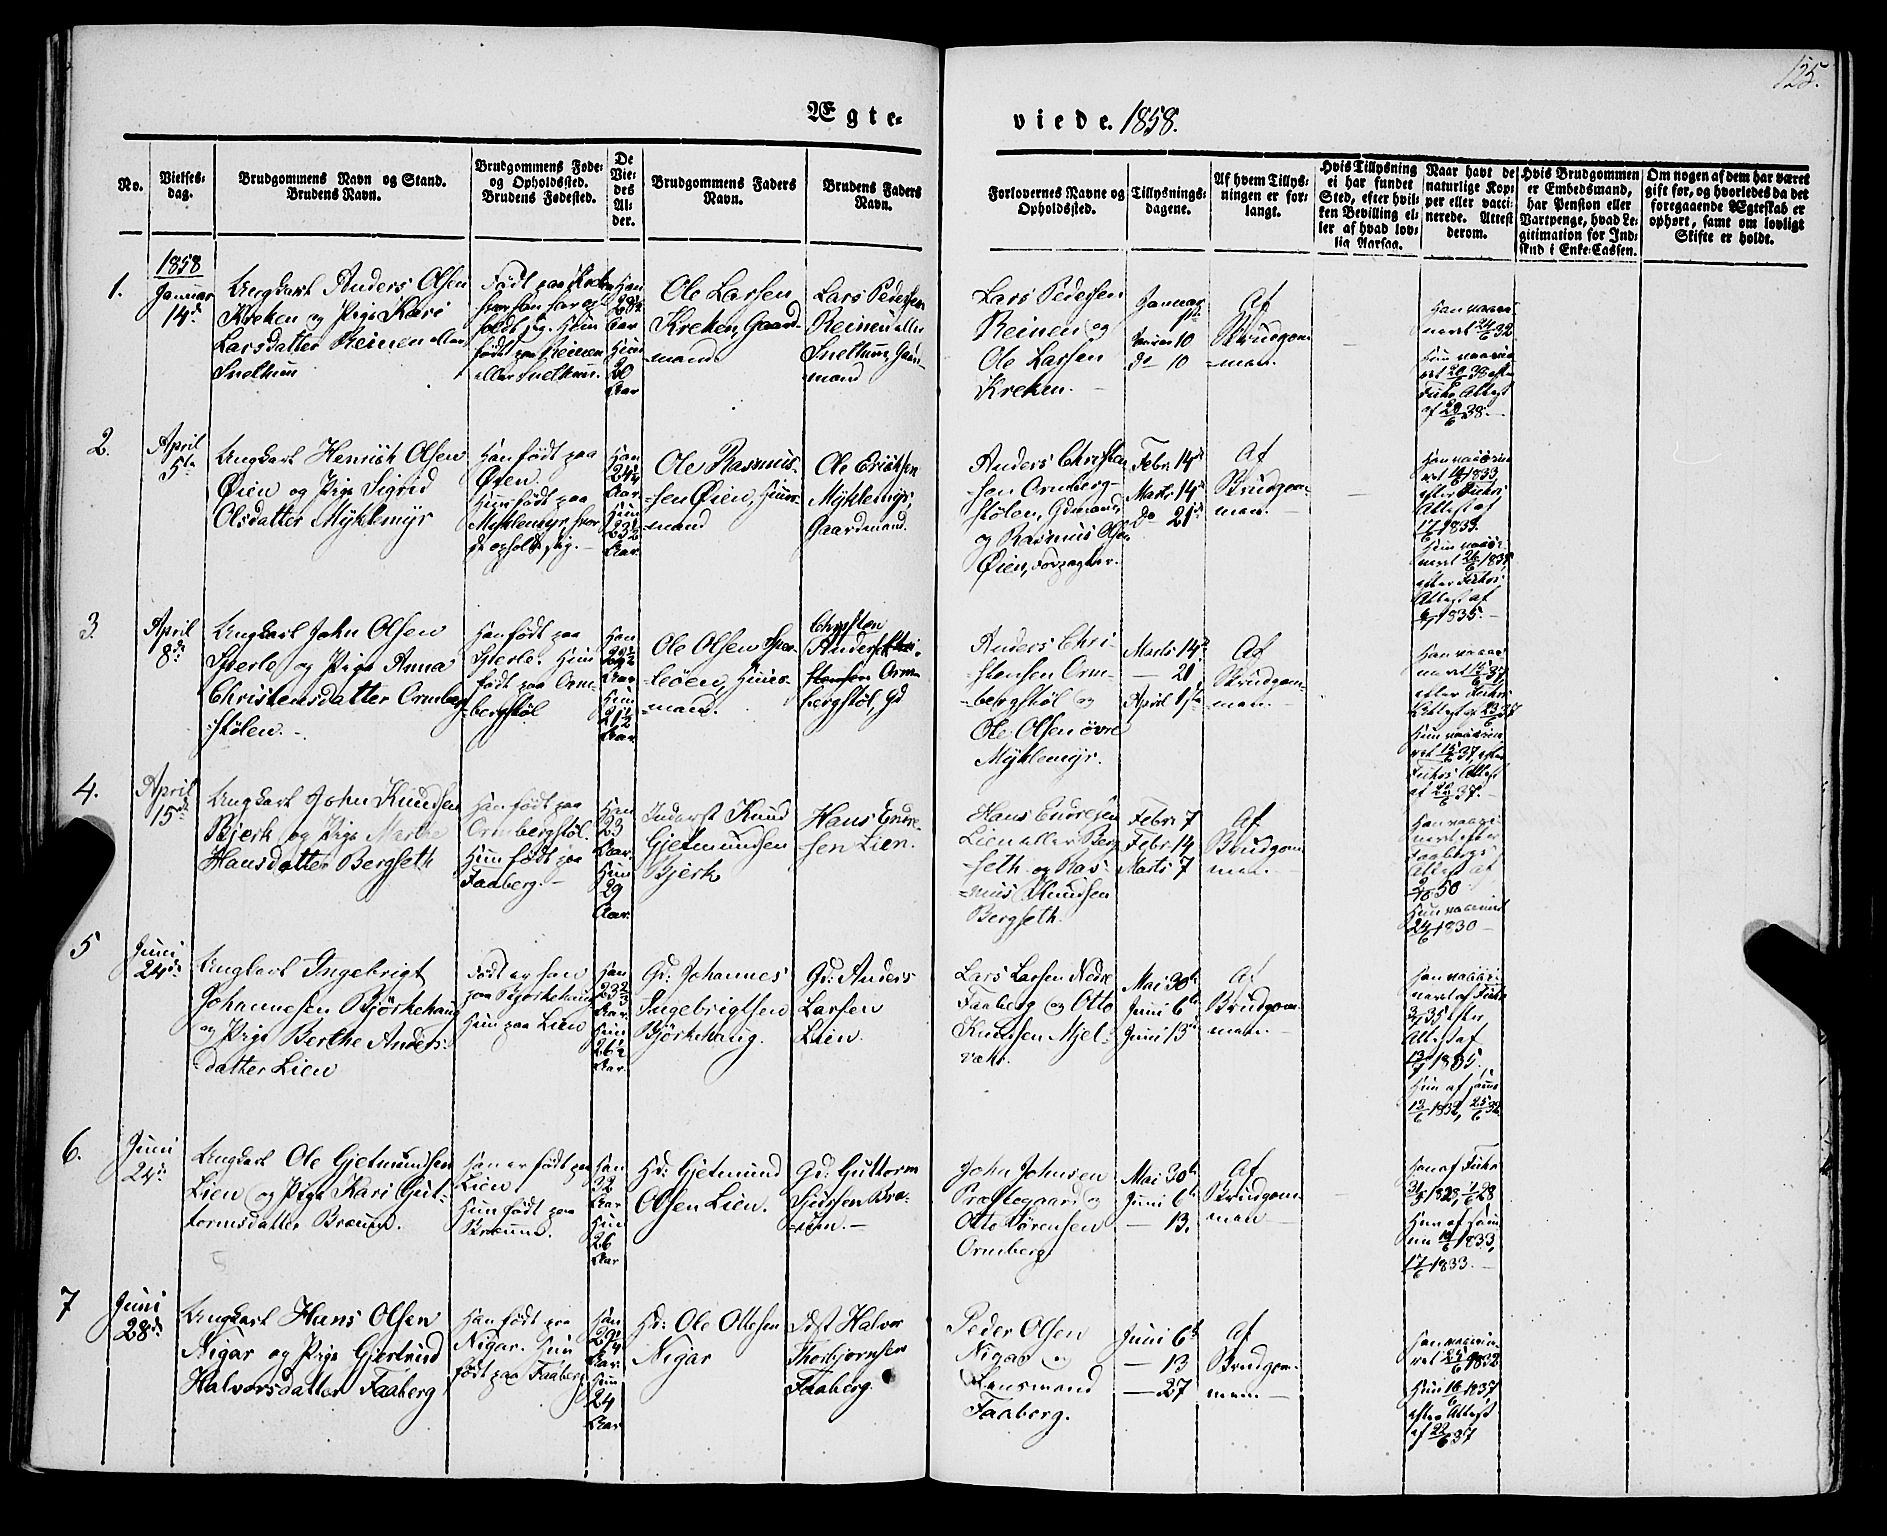 125.
Ægte-
viede. 1858.
No.
Vielses-
dag.
Brudgommens Navn og Stand.
Brudens Navn.
Brudgommens Føde-
og Opholdssted.
Brudens Fødested.
De
Vie-
des
Al-
der.
Brudgommens Faders
Navn.
Brudens Faders
Navn.
Forlovernes Navne og
Opholdssted.
Tillysnings-
dagene.
Af hvem Tillys-
ningen er for-
langt.
Hvis Tillysning
ei har fundet
Sted, efter hvil-
ken Bevilling el-
ler af hvad lov-
lig Aarsag.
Naar havt de
naturlige Kop-
per eller vacci-
nerede. Attest
derom.
Hvis Brudgommen
er Embedsmand,
har Pension eller
Vartpenge, hvad Le-
gitimation for Ind-
skud i Enke-Cassen.
Om nogen af dem har været
gift før, og hvorledes da det
foregaaende Ægteskab er
ophørt, samt om lovligt
Skifte er holdt.
1.
1858
Januar
14de
Ungkarl Anders Olsen
Kreken og Pige Kari
Larsdatter Reinen eller
Snelthun
Født paa Kreken
hvor han har op-
holdt sig. Hun
født paa Reinen
eller Snelthun.
Han
Aar
Hun
20
Aar
Ole Larsen
Kreken, Gaard-
mand.
Lars Pedersen
Reinen eller
Snelthun, Gaar-
mand
Lars Pedersen
Reinen og
Ole Larsen
Kreken.
Januar
10
do 10
Af
Brudgom-
man.
Han vacci-
neret 24/6 32
Hun vacci-
ret 20/6 38 efter
Attest
af 20/6 38.
2.
April
5te
Ungkarl Henrik Olsen
Øien og Pige Sigrid
Olsdatter Myklemyr
Han født paa
Øien.
Hun født paa
Myklemyr, hvor
de opholdt sig.
Han
24¼
Aar.
Hun
23½
Aar.
Ole Rasmus-
sen Øien, Huus-
mand
Ole Erichsen
Myklemyr,
Gaardmand.
Anders Christen-
sen Ormberg-
stølen, Gdmand,
og Rasmus Olsen
Øien, Forpagter.
Febr. 14de
Marts 14de
do 21de
Af
Brudgom-
man.
Han vaccine-
ret 14/6 1833,
efter
Attest af
17/6 1833.
Hun vacci-
neret 26/6 1835
efter
Attest af
1835.
3.
April
8de
Ungkarl John Olsen
Sperle og Pige Anna
Christensdatter Ormberg-
stølen.
Han født paa
Sperle. Hun
født paa Orm-
bergstøl
Han
Aar
Hun
21½
Aar.
Ole Olsen Sper-
leøen, Huus-
mand.
Christen
Anders Chri-
stensen Orm-
bergstøl, Gd
Anders Chri-
stensen Orm-
bergstøl og
Ole Olsen øvre
Myklemyr.
Marts 14de
— 21
April 1ste
Af
Brudgom-
man.
Han vacci-
neret 15/6 37
efter
Attest af 23/6 37
Hun vaccine-
ret 15/6 37, efter
Attest
af 22/6 37.
4.
April
15de
Ungkarl John Knudsen
Bjerk og Pige Marthe
Hansdatter Bergseth
Han født paa
Ormbergstøl.
Hun født paa
Faaberg.
Han
23
Aar.
Hun
29
Aar.
Inderst Knud
Gjetmundsen
Bjerk
Hans Endre-
sen Lien.
Hans Endresen
Lien eller Berg-
seth og Ras-
mus Knudsen
Bergseth.
Febr. 7
Febr. 14
Marts 7
Af
Brudgom-
man.
Han vacci-
neret efter
Faabergs
Attest af
50
Hun vaccineret
24/6 1830
5
Juni
24de
Ungkarl Ingebrigt
Johannesen Bjørkehaug
og Pige Berthe Anders-
datter Lien
Født er han
paa Bjørkehaug
Hun paa Lien
Han
23⅔
Aar.
Hun
26½
Aar.
Gd: Johannes
Ingebrigtsen
Bjørkehaug.
Gd: Anders
Larsen
Lien.
Lars Larsen Nedre
Faaberg og Otto
Knudsen Mjel-
vær.
Mai 30te
Juni 6te
Juni 13de
Af
Brudgom-
man.
Han vacci-
neret af
35 efter
Attest af
1835.
Hun af samme
13/6 1832, 25/6 32
6.
Juni
24de
Ungkarl Ole Gjetmundsen
Lien og Pige Kari Gut-
tormsdatter Bræum.
Han er født paa
Lien
Hun født paa
Bræum.
Han
32
Aar
Hun
26
Aar
Hd: Gjetmund
Olsen Lien.
Gd: Guttorm
Sjursen Bræ-
um.
John Johnsen
Præstegaard og
Otto Sørensen
Ormberg
Mai 30te
Juni 6te
— 13.
Af
Brudgom-
man
Han af
1828, 28
Hun af sam-
me 1833,
17/6 1833.
7
Juni
28de
Ungkarl Hans Olsen
Nigar og Pige Gjertrud
Halvorsdatter Faaberg
Han født paa
Nigar. Hun
født paa Faaberg
Han
Aar.
Hun
24
Aar
Hd: Ole Ottesen
Nigar
Halvor
Thorbjørnsen
Faaberg.
Peder Olsen
Nigar og
Lensmand
Faaberg.
Juni 6te
— 13
— 27
Af
Brudgom-
man.
Han vaccine-
ret 25/6 1832
Hun 16/6 1837
efter Attest
af 22/6 37